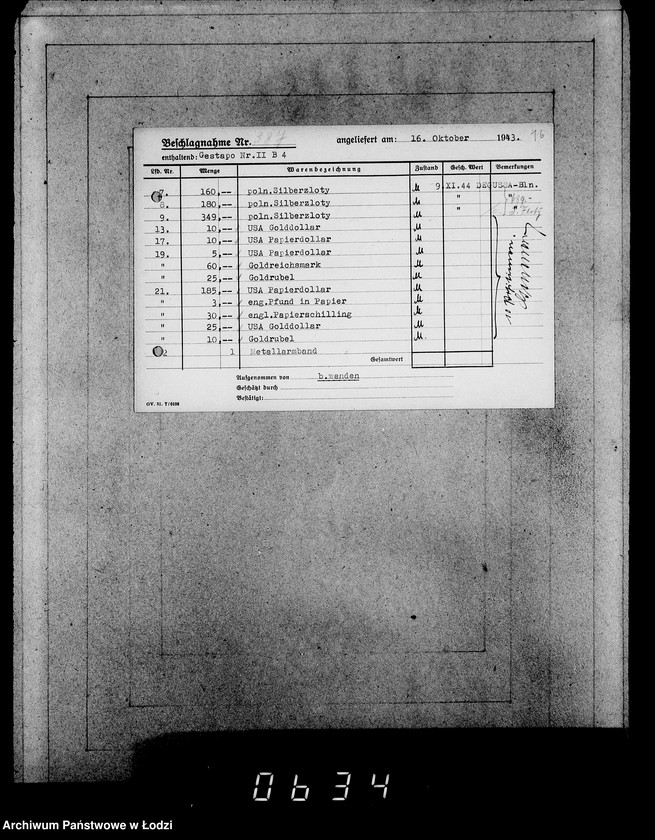 Beschlagnahme Nr. 387 angeliefert am: 16. Oktober 1943. 16
enthaltend: Gestapo Nr.II B 4
Lfd. Nr. Menge Warenbezeichnung Zustand Gesch. Wert Bemerkungen
7. 160,-- poln.Silberzloty 9.XI.44 DEGUSSA-Bln.
8. 180,-- poln.Silberzloty " "
9. 349,-- poln.Silberzloty " "
13. 10,-- USA Golddollar
17. 10,-- USA Papierdollar
19. 5,-- USA Papierdollar
" 60,-- Goldreichsmark
" 25,-- Goldrubel
21. 185,-- USA Papierdollar
" 3,-- eng.Pfund in Papier
" 30,-- engl.Papierschilling
" 25,-- USA Golddollar
" 10,-- Goldrubel
1 Metallarmband
Gesamtwert
Aufgenommen von b.wenden
Geschätzt durch
Bestätigt:
GV. XI. T/0108
0634
Archiwum Państwowe w Łodzi